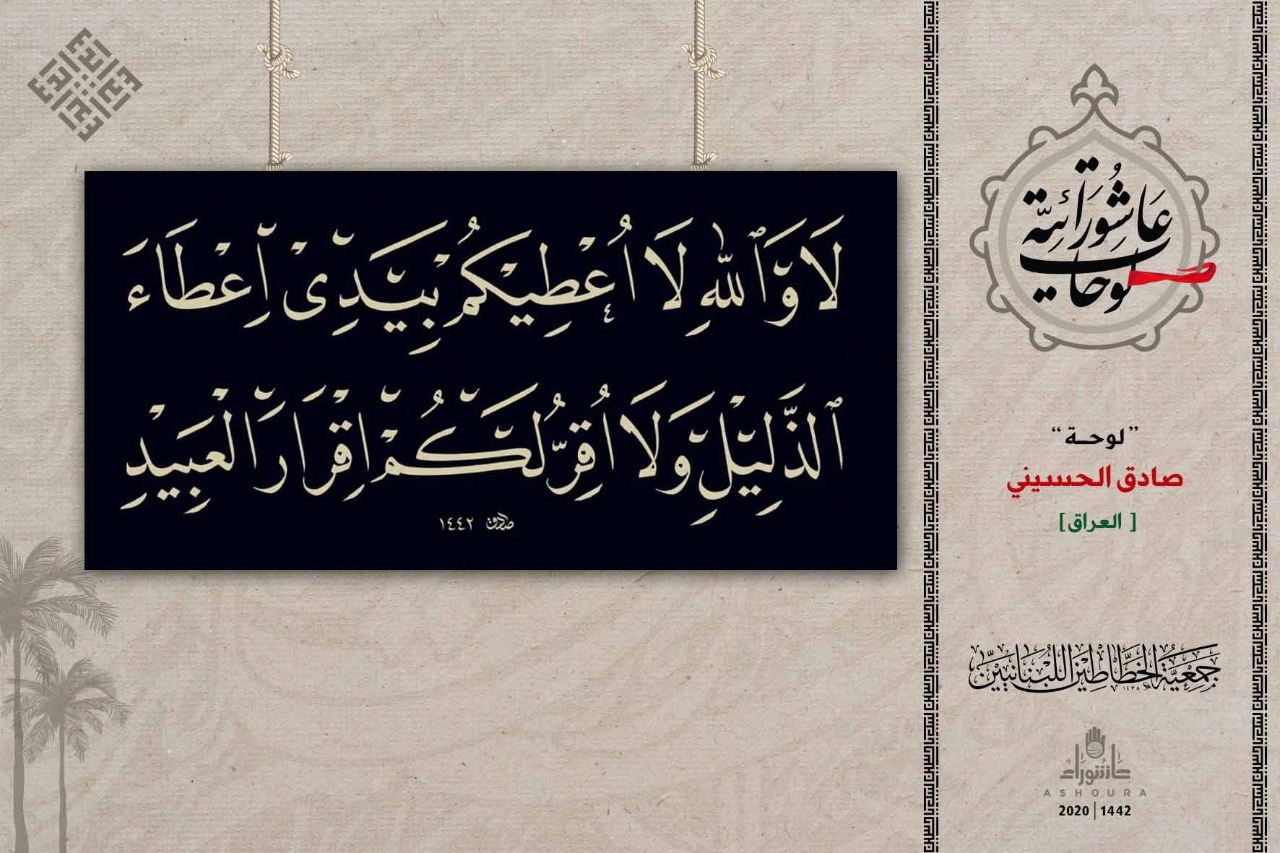 لَا وَٱللهِ لَا اُعْطِيْكُمْ بِيَدِىْ اِعْطَاءَ
ٱلذَّلِيْلِ وَلَا اُقِرُّ لَكُمْ اِقْرَارَ الْعَبِيْدِ
صادق ١٤٤٢
عَاشُورَائيَّة
لوحات
”لوحـة“
صادق الحسيني
[العراق]
جَمْعِيَّةُ الخَطَّاطِيْنَ اللُّبْنَانِيِّيْنَ
١٤٣٨
عاشوراء
ASHOURA
2020 | 1442